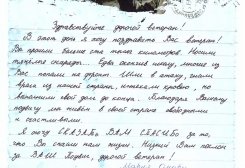 Здравствуйте дорогой ветеран!
В этот день я хочу поздравить Вас ветеран!
Вы прошли больше ста тысяч километров. Носили
тяжёлые снаряды. Едва окончив школу, многие из
Вас попали на фронт. Шли в атаку, гнали
врага из нашей страны, истекали кровью, но
выполнили свой долг до конца. Благодаря Вашему
подвигу мы живём в этой стране свободными
и счастливыми.
Я хочу СКАЗАТЬ ВАМ СПАСИБО за то,
что Вы спасли нам жизнь. Низкий Вам поклон
за ВАШ Подвиг, дорогой ветеран!